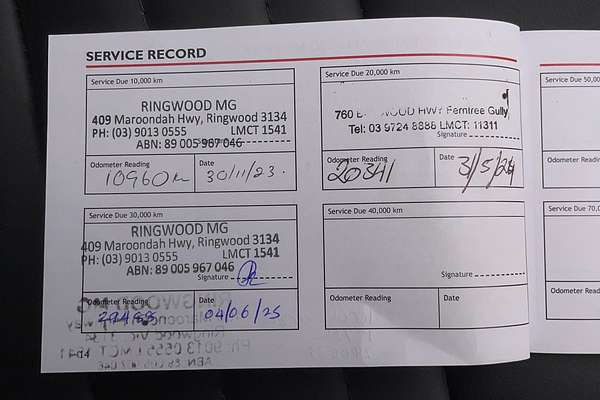 SERVICE RECORD
Service Due 10,000 km
RINGWOOD MG
409 Maroondah Hwy, Ringwood 3134
PH: (03) 9013 0555 LMCT 1541
ABN: 89 005 967 046
Odometer Reading Date
10960 30/11/23.
Service Due 20,000 km
760 HWY Ferntree Gully
Tel: 03 9724 8888 LMCT: 11311
Signature
Odometer Reading Date
20341 3/5/24
Service Due 30,000 km
RINGWOOD MG
409 Maroondah Hwy, Ringwood 3134
PH: (03) 9013 0555 LMCT 1541
ABN: 89 005 967 046
Signature
Odometer Reading Date
04/06/25
Service Due 40,000 km
Signature
Odometer Reading Date
Service Due 50,00
Odometer Reading
Service Due 70,0
Odometer Reading